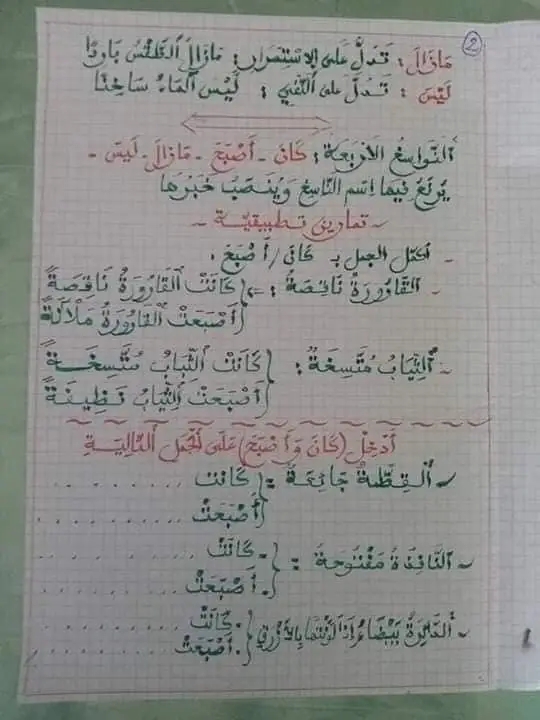 2
مَازَالَ : تَدُلُّ عَلَى الِاسْتِمْرَارِ : مَازَالَ الطَّقْسُ بَارِدًا
لَيْسَ : تَدُلُّ عَلَى النَّفْيِ : لَيْسَ الْمَاءُ سَاخِنًا
النَّوَاسِخُ الأَرْبَعَةُ : كَانَ - أَصْبَحَ - مَازَالَ - لَيْسَ -
يُرْفَعُ فِيهَا اِسْمُ النَّاسِخِ وَيُنْصَبُ خَبَرُهَا
- تمارين تطبيقية -
- أكمل الجمل بـ كَانَ / أَصْبَحَ :
- القَارُورَةُ نَاقِصَةٌ : => كَانَتْ القَارُورَةُ نَاقِصَةً
أَصْبَحَتْ القَارُورَةُ مَلْآنَةً
- الثِّيَابُ مُتَّسِخَةٌ : كَانَتْ الثِّيَابُ مُتَّسِخَةً
أَصْبَحَتْ الثِّيَابُ نَظِيفَةً
أَدْخِلْ (كَانَ وَأَصْبَحَ) عَلَى الْجُمَلِ التَّالِيَةِ
- الْقِطَّةُ جَائِعَةٌ = كَانَتْ . . . . . . . . .
أَصْبَحَتْ . . . . . . . . .
- النَّافِذَةُ مَفْتُوحَةٌ : كَانَتْ . . . . . . . . .
أَصْبَحَتْ . . . . . . . . .
- الدَّائِرَةُ بَيْضَاءُ بِالأَزْرَقِ كَانَتْ . . . . . . .
أَصْبَحَتْ . . . . . . .